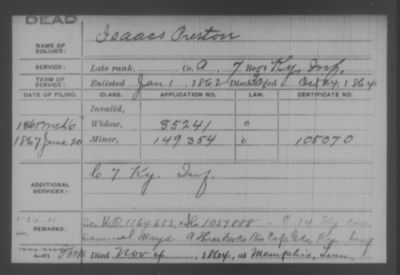 DEAD
NAME OF SOLDIER: Isaacs Preston
SERVICE: Late rank, Co. A, 7 Reg't Ky. Inf.
TERM OF SERVICE: Enlisted Jan 1, 1862 Discharged Oct 24, 1864
DATE OF FILING. CLASS. APPLICATION NO. LAW. CERTIFICATE NO.
Invalid,
1865 Mch 6 Widow, 85241 o
1867 June 20 Minor, 149354 o 105070
ADDITIONAL SERVICES: C 7 Ky. Inf.
REMARKS: See W.O. 1164653 1059888 C 14 Ky
Samuel Ky Inf
Died Nov 4, 1864, at Memphis, Tenn